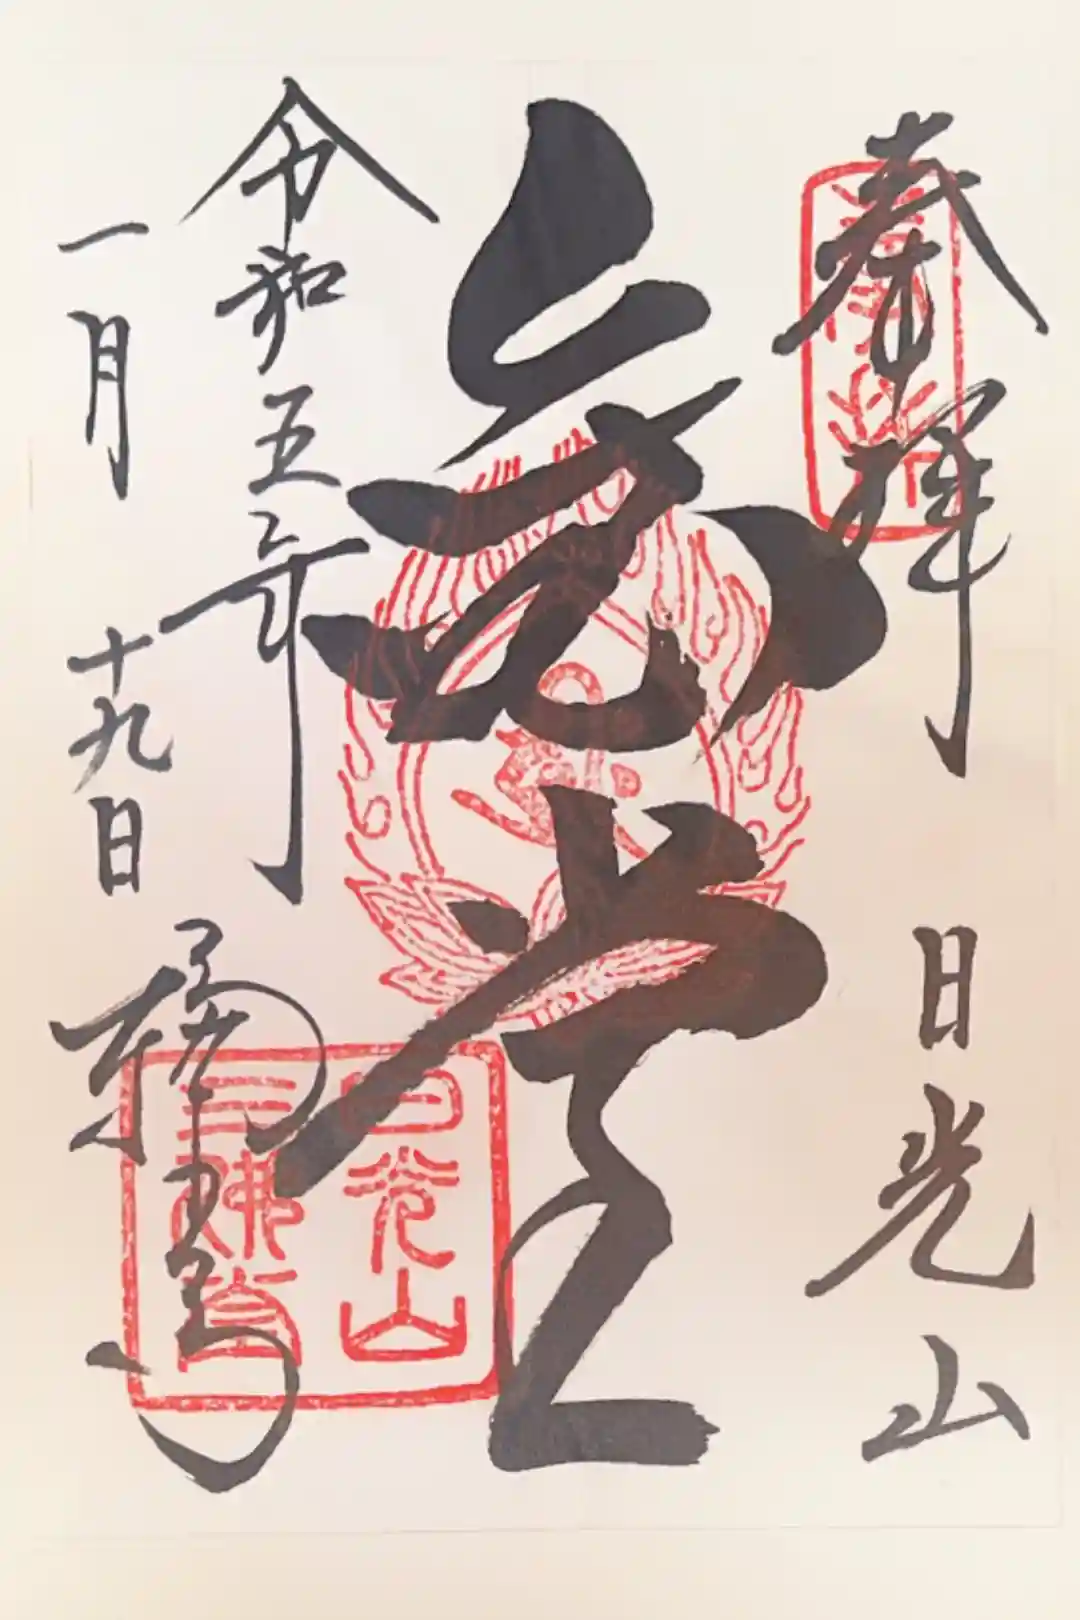 奉拝　日光山
金堂
令和五年
一月十九日
輪王寺
日光山
三佛堂